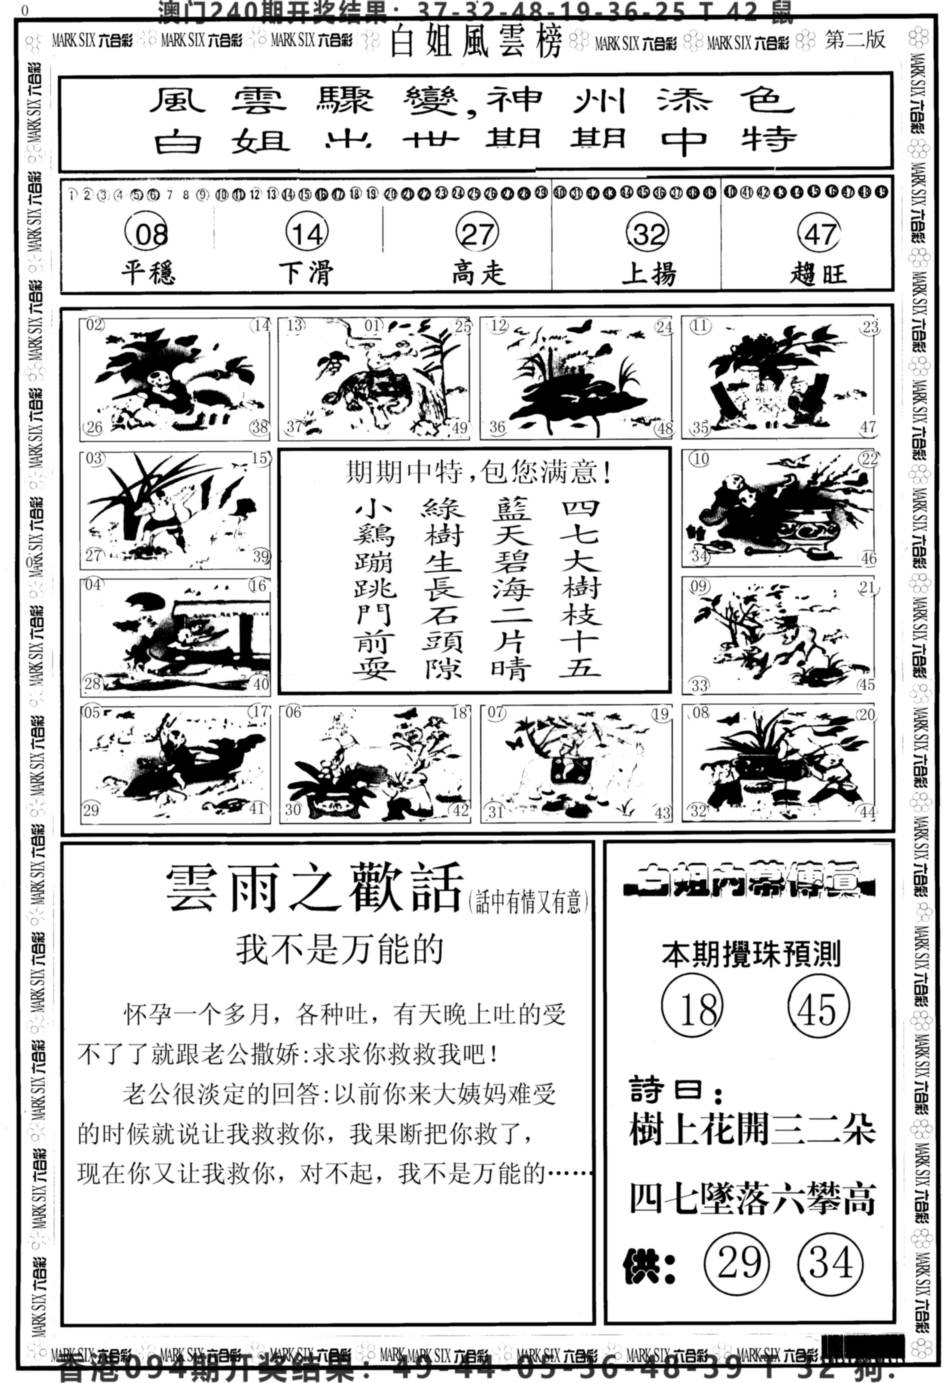 0
澳门240期开奖结果：37-32-48-19-36-25 T 42 鼠
MARK SIX 六合彩 MARK SIX 六合彩 MARK SIX 六合彩 白姐風雲榜 MARK SIX 六合彩 MARK SIX 六合彩 第二版
風雲驟變,神州添色
白姐出世期期中特
1 2 3 4 5 6 7 8 9 10 11 12 13 14 15 16 17 18 19 20 21 22 23 24 25 26 27 28 29 30 31 32 33 34 35 36 37 38 39 40 41 42 43 44 45 46 47 48 49
08 14 27 32 47
平穩 下滑 高走 上揚 趨旺
02 14 13 01 25 12 24 11 23
26 38 37 49 36 48 35 47
03 15 10 22
27 39 34 46
04 16 09 21
28 40 33 45
期期中特,包您满意!
四七大樹枝十五
藍天碧海二片晴
綠樹生長石頭隙
小鷄蹦跳門前耍
05 17 06 18 07 19 08 20
29 41 30 42 31 43 32 44
雲雨之歡話(話中有情又有意)
我不是万能的
怀孕一个多月，各种吐，有天晚上吐的受
不了了就跟老公撒娇:求求你救救我吧!
老公很淡定的回答:以前你来大姨妈难受
的时候就说让我救救你，我果断把你救了，
现在你又让我救你，对不起，我不是万能的……
白姐内幕傳真
本期攪珠預測
18 45
詩曰:
樹上花開三二朵
四七墜落六攀高
供: 29 34
MARK SIX 六合彩 MARK SIX 六合彩 MARK SIX 六合彩 MARK SIX 六合彩 MARK SIX 六合彩 MARK SIX 六合彩
香港094期开奖结果：49-44-05-36-48-39 T 32 狗.